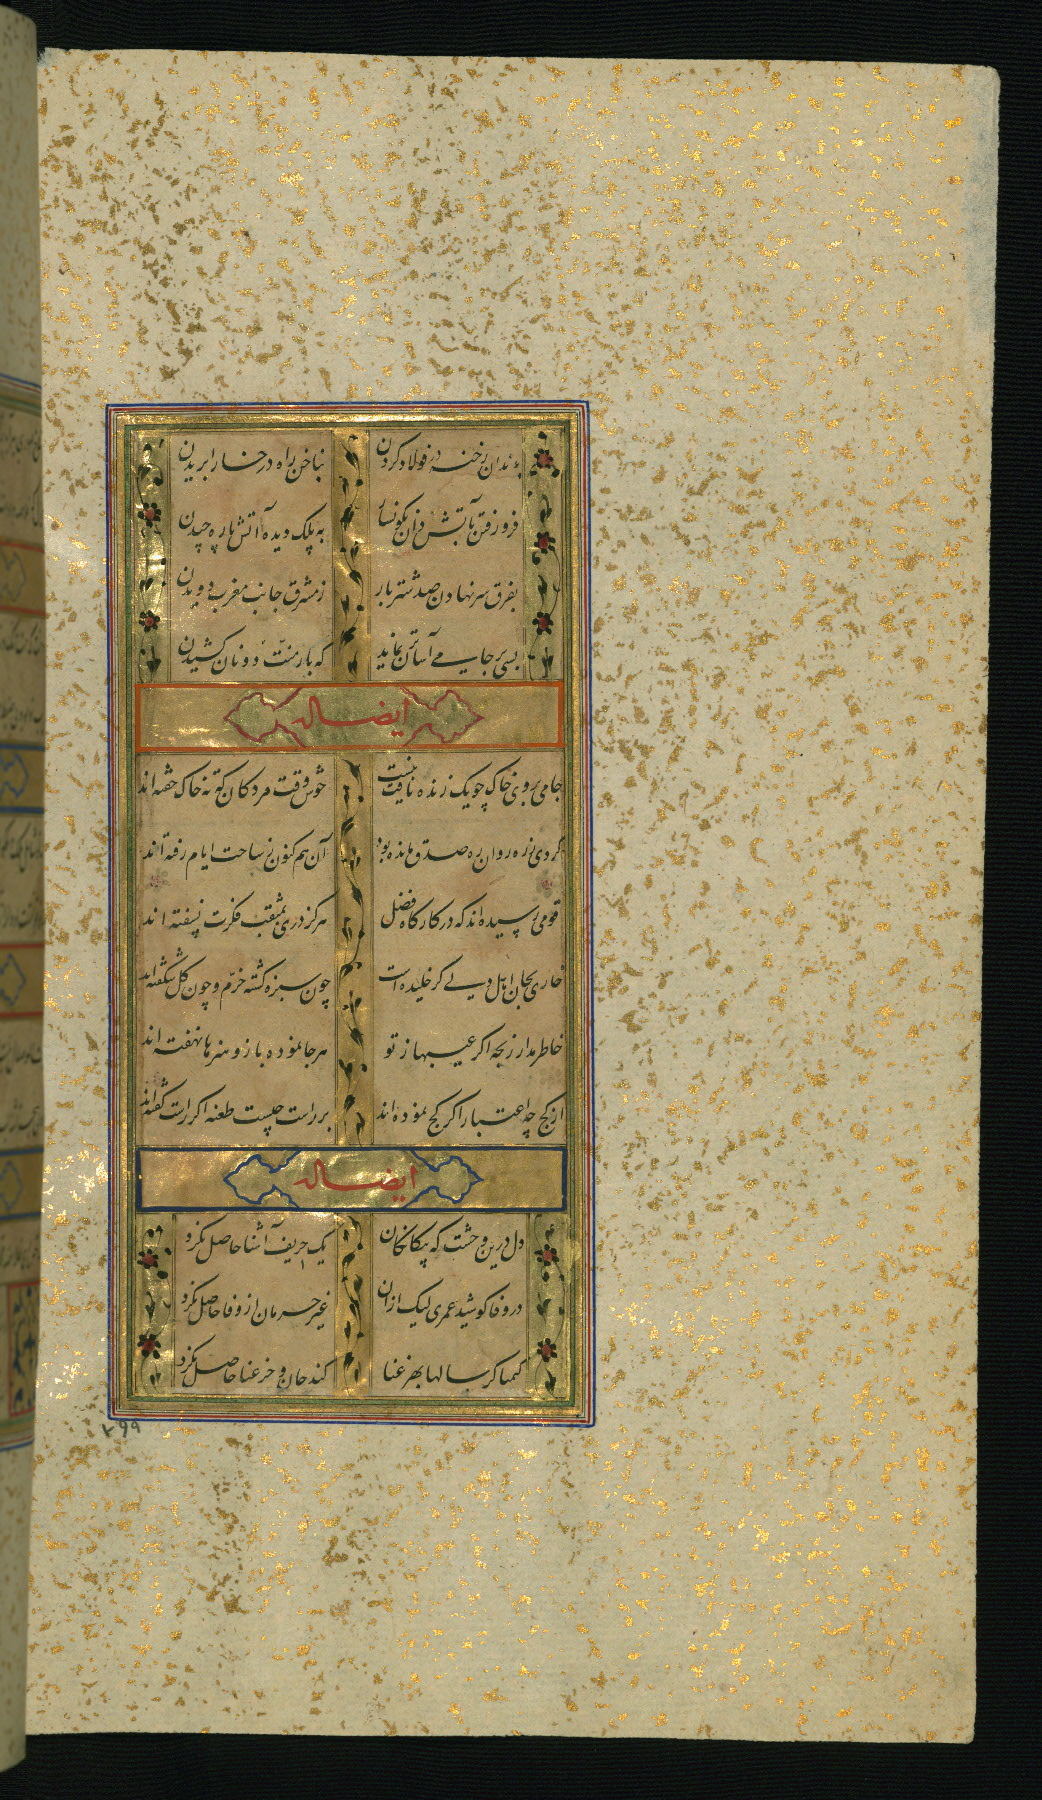 بدندان رخنه در فولاد کردن
بناخن راه در خارا بریدن
فرو رفتن بآتشدان نگونسار
به پلک دیده آتش پاره چیدن
بفرق سر نهادن صد شتر بار
ز مشرق جانب مغرب دویدن
بسی بر جامی آسانتر نماید
که بار منت دونان کشیدن
ایضا له
جامی بروی خاک چو یک زنده یافت نیست
خوش وقت مردکان که ته خاک خفته اند
گردی ز ره روان ره صدق مانده بود
آن هم کنون ز ساحت ایام رفته اند
قومی رسیده اند که در کارگاه فضل
هرگز دری بمثقب فکرت نسفته اند
خاری بجان اهل دلی گر خلیده است
چون سبزه گشته خرم و چون گل شکفته اند
خاطر مدار رنجه اگر عیبها ز تو
هر جا نموده باز و هنرها نهفته اند
از کج چه اعتبار اگر کج نموده اند
بر راست چیست طعنه اگر راست گفته اند
ایضا له
دل درین وحشت که بیکانکان
یک حریف آشنا حاصل نکرد
در وفا کوشید عمری لیک ازان
غیر حرمان از وفا حاصل نکرد
کیمیاگر سالها بهر غنا
کند جان و جز عنا حاصل نکرد